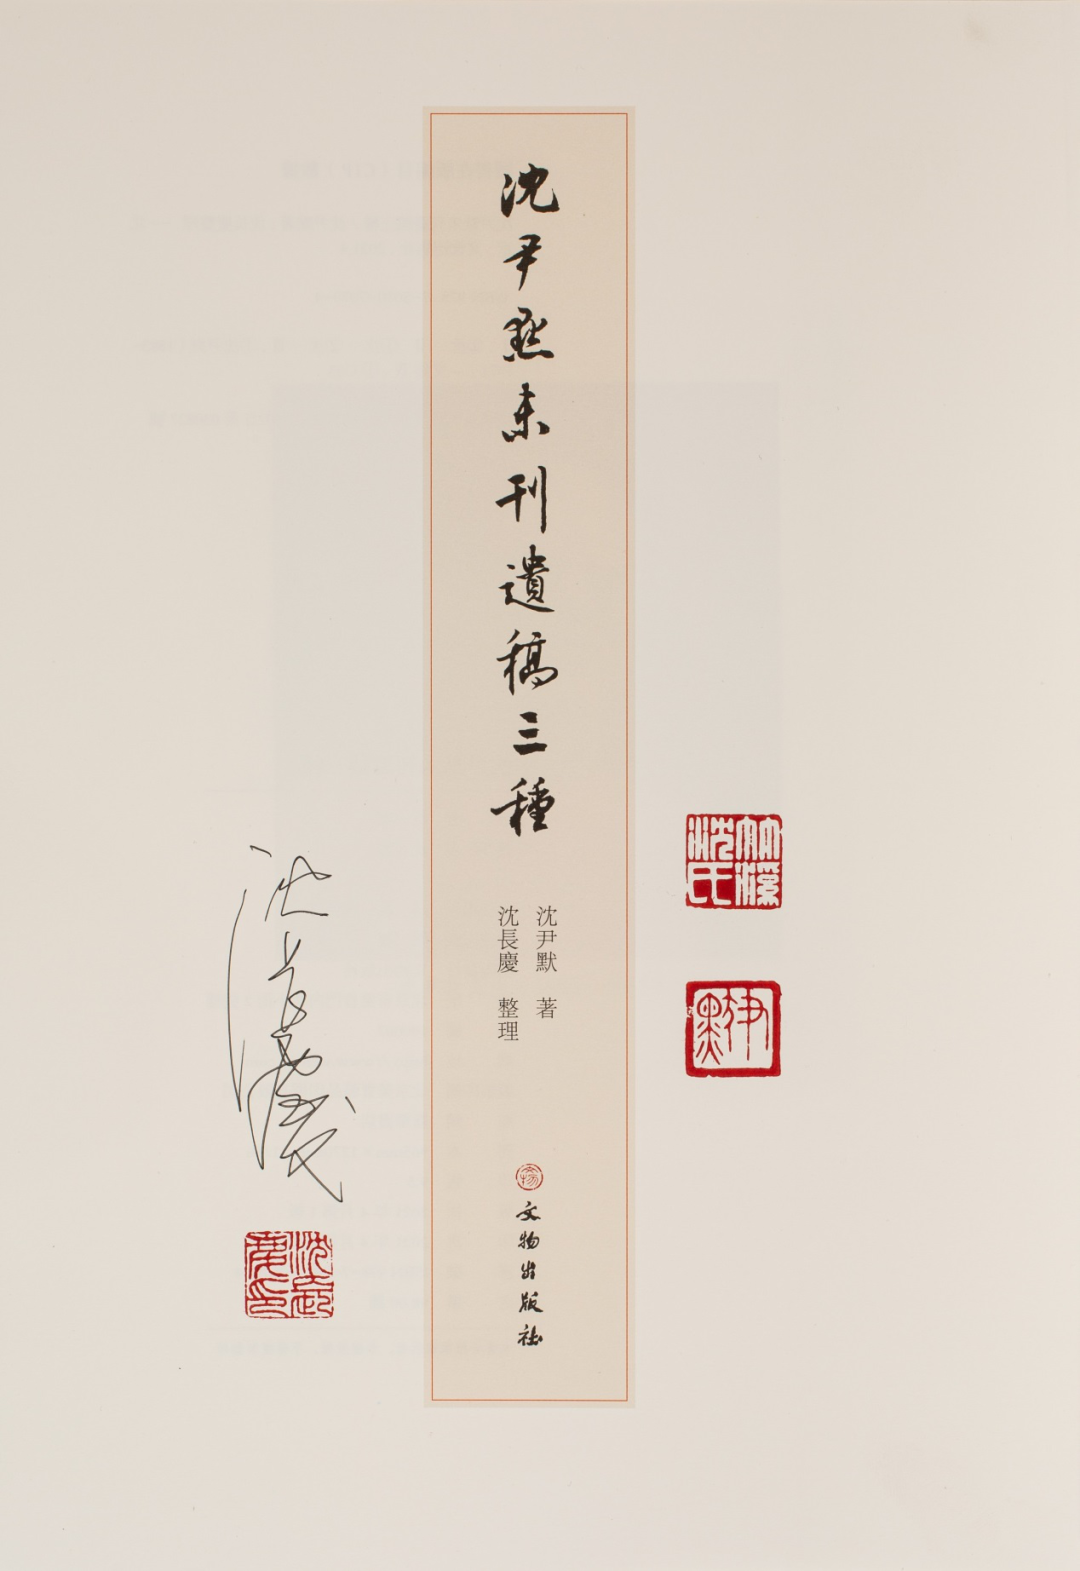 沈尹默未刊遺稿三種
沈尹默 著
沈長慶 整理
文物出版社
竹溪
沈氏
尹默
沈長慶
沈長
慶印